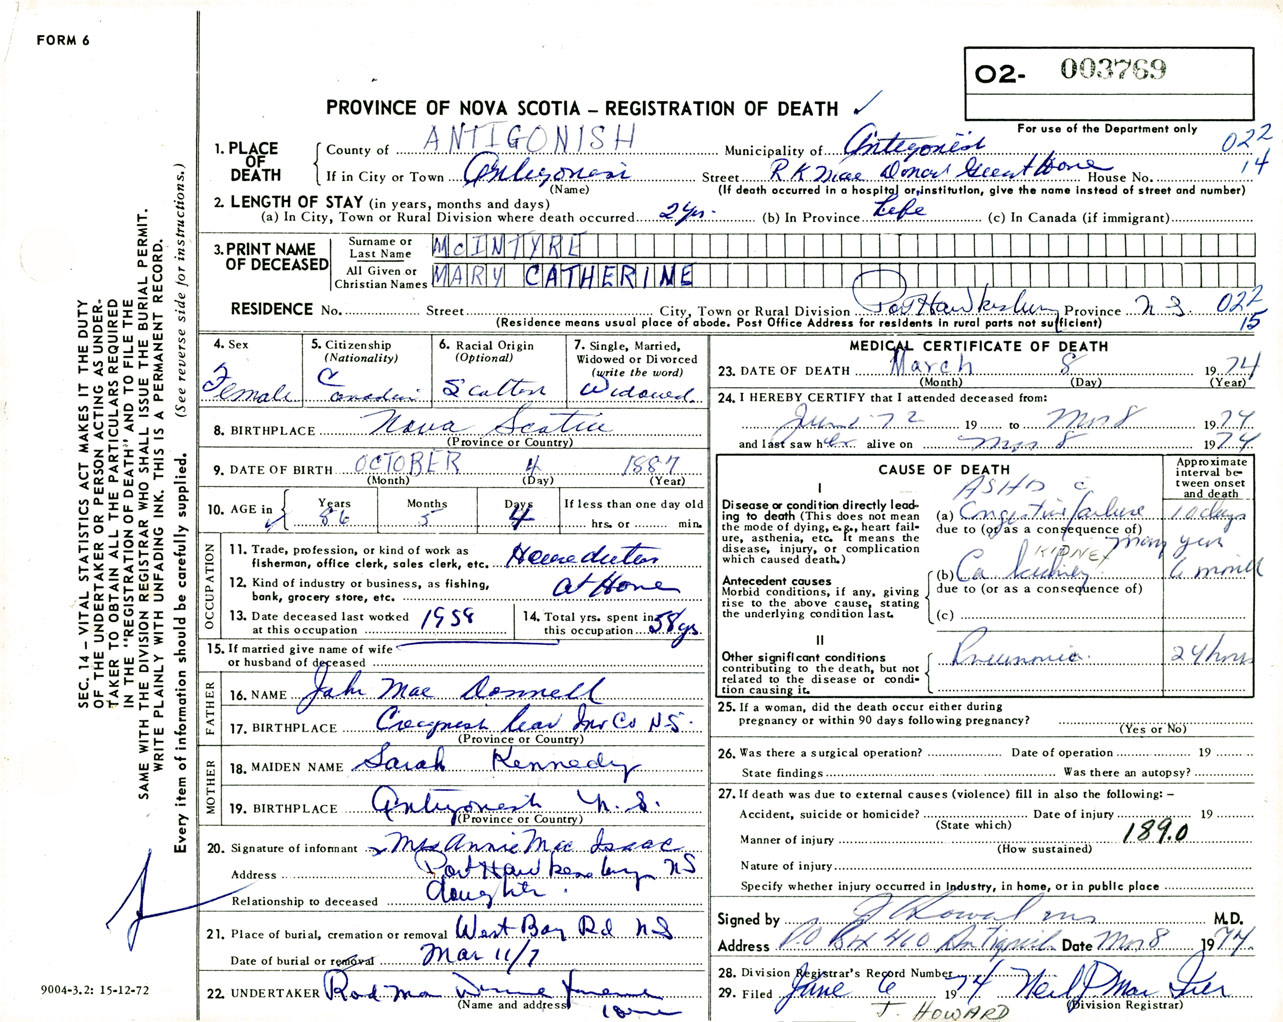 FORM 6
O2- 003769
For use of the Department only
PROVINCE OF NOVA SCOTIA – REGISTRATION OF DEATH ✓
1. PLACE OF DEATH
County of ANTIGONISH Municipality of Antigonish 022
If in City or Town Antigonish Street R K Mac Donald Guest Home House No. 14
(Name) (If death occurred in a hospital or institution, give the name instead of street and number)
2. LENGTH OF STAY (in years, months and days)
(a) In City, Town or Rural Division where death occurred 2 yrs. (b) In Province Life (c) In Canada (if immigrant)
3. PRINT NAME OF DECEASED
Surname or Last Name McINTYRE
All Given or Christian Names MARY CATHERINE
RESIDENCE No. Street City, Town or Rural Division Port Hawkesbury Province N S. 022
(Residence means usual place of abode. Post Office Address for residents in rural parts not sufficient) 15
4. Sex Female
5. Citizenship (Nationality) Canadian
6. Racial Origin (Optional)
7. Single, Married, Widowed or Divorced (write the word) Widowed
8. BIRTHPLACE Nova Scotia
(Province or Country)
9. DATE OF BIRTH OCTOBER 4 1887
(Month) (Day) (Year)
10. AGE in Years 86 Months 5 Days 4 If less than one day old hrs. or min.
OCCUPATION
11. Trade, profession, or kind of work as fisherman, office clerk, sales clerk, etc.
12. Kind of industry or business, as fishing, bank, grocery store, etc. At Home
13. Date deceased last worked at this occupation 1958
14. Total yrs. spent in this occupation 58 yrs.
15. If married give name of wife or husband of deceased
FATHER
16. NAME John Mac Donnell
17. BIRTHPLACE Creignish Rear Inv Co N S.
(Province or Country)
MOTHER
18. MAIDEN NAME Sarah Kennedy
19. BIRTHPLACE Antigonish N. S.
(Province or Country)
20. Signature of informant Mrs Annie Mac Isaac
Address Port Hawkesbury NS
Relationship to deceased daughter.
21. Place of burial, cremation or removal West Bay Rd N S
Date of burial or removal Mar 11/7
22. UNDERTAKER Rod Mac
(Name and address)
MEDICAL CERTIFICATE OF DEATH
23. DATE OF DEATH March 8 1974
(Month) (Day) (Year)
24. I HEREBY CERTIFY that I attended deceased from:
June 72 19 to Mar 8 1974
and last saw her alive on Mar 8 1974
CAUSE OF DEATH
Approximate interval between onset and death
I
Disease or condition directly leading to death (This does not mean the mode of dying, e.g., heart failure, asthenia, etc. It means the disease, injury, or complication which caused death.)
ASHD c
(a) Congestive failure 10 days
due to (or as a consequence of) many years
Antecedent causes
Morbid conditions, if any, giving rise to the above cause, stating the underlying condition last.
KIDNEY
(b) Ca kidney 6 month
due to (or as a consequence of)
(c)
II
Other significant conditions contributing to the death, but not related to the disease or condition causing it.
Pneumonia. 24 hours
25. If a woman, did the death occur either during pregnancy or within 90 days following pregnancy?
(Yes or No)
26. Was there a surgical operation? Date of operation 19
State findings Was there an autopsy?
27. If death was due to external causes (violence) fill in also the following: –
Accident, suicide or homicide? Date of injury 19
(State which)
Manner of injury 189.0
(How sustained)
Nature of injury
Specify whether injury occurred in Industry, in home, or in public place
Signed by J Howard M.D.
Address P O Box 460 Antigonish Date Mar 8 1974.
28. Division Registrar's Record Number
29. Filed June 6 1974 Neil J Mac
(Division Registrar)
J. HOWARD
SEC. 14 – VITAL STATISTICS ACT MAKES IT THE DUTY
OF THE UNDERTAKER OR PERSON ACTING AS UNDER-
TAKER TO OBTAIN ALL THE PARTICULARS REQUIRED
IN THE "REGISTRATION OF DEATH" AND TO FILE THE
SAME WITH THE DIVISION REGISTRAR WHO SHALL ISSUE THE BURIAL PERMIT.
WRITE PLAINLY WITH UNFADING INK. THIS IS A PERMANENT RECORD.
Every item of information should be carefully supplied. (See reverse side for instructions.)
9004-3.2: 15-12-72